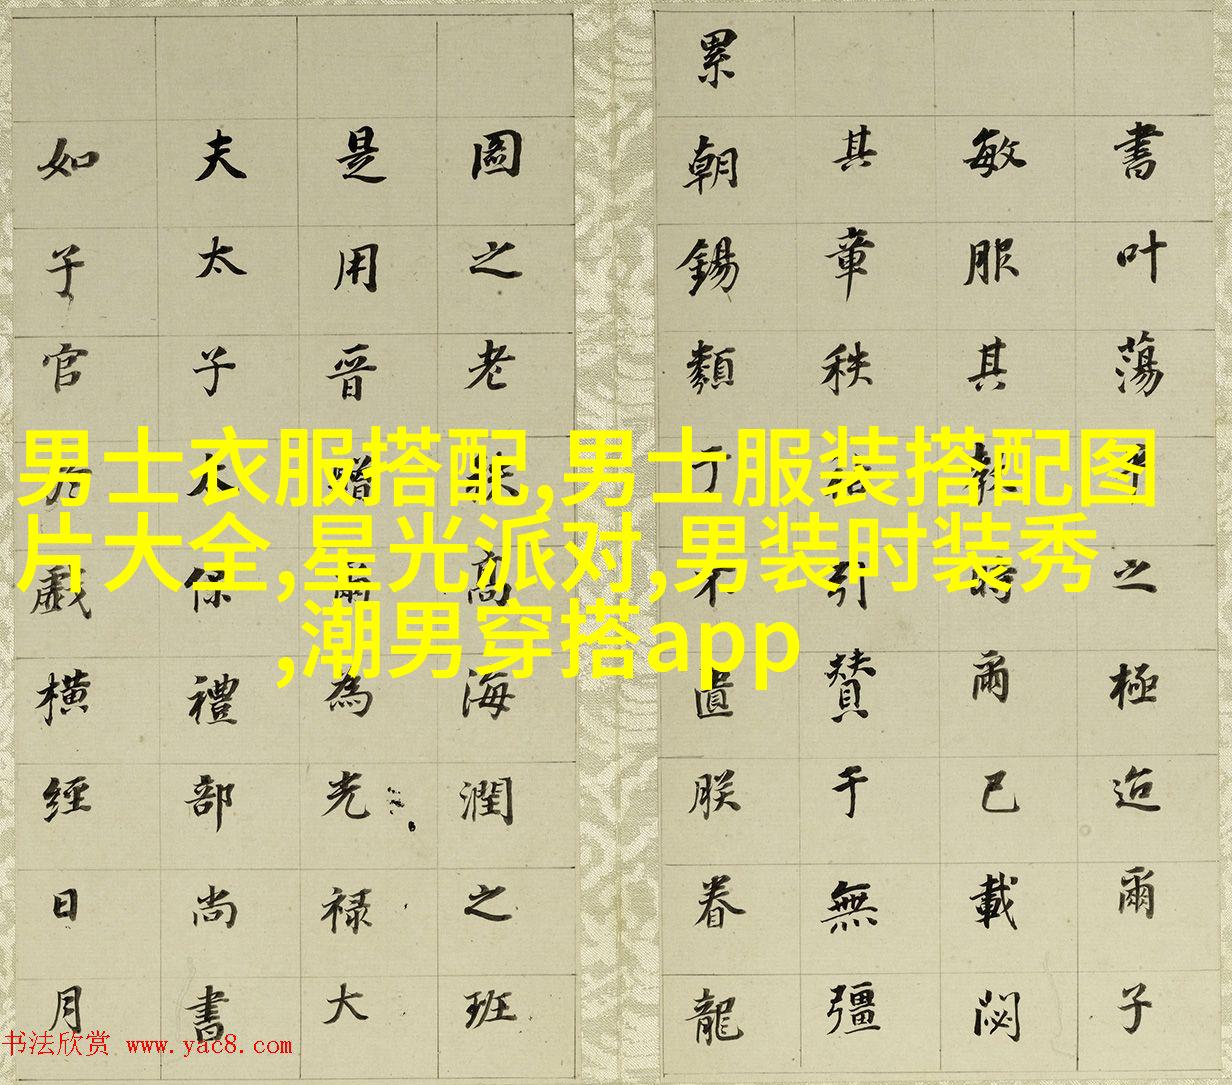 書叶蕩平之極迨爾子
敏服其爾已載閟
其章秩引賛于無彊
累朝錫類于不遺朕眷龍
圖之老高海潤之班
是用晉贈爾為光禄大
夫太子太保禮部尚書
如子官乃戲橫經日月
男士衣服搭配,男士服装搭配图
片大全,星光派对,男装时装秀
,潮男穿搭app
书法欣赏 www.yac8.com